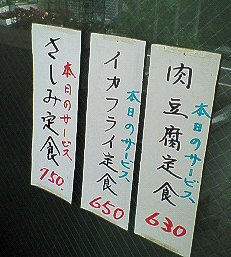 本日のサービス
肉豆腐定食
630
本日のサービス
イカフライ定食
650
本日のサービス
さしみ定食
750.